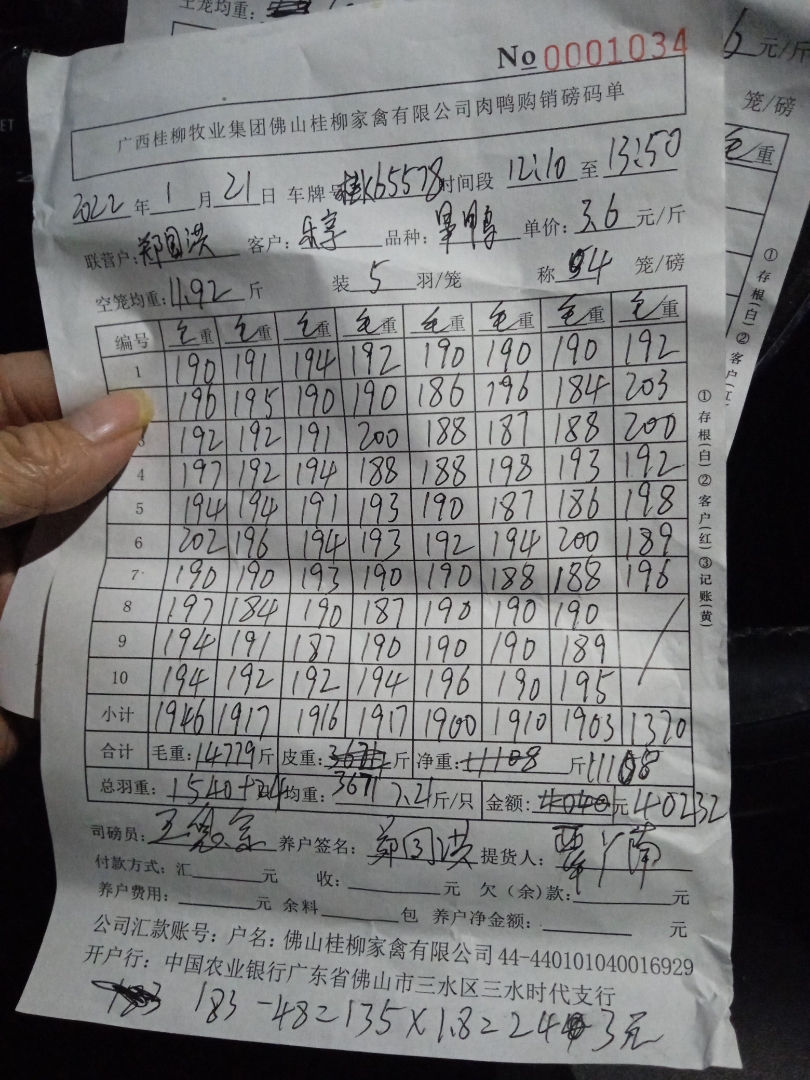 王笼均重：
6 元/斤
笼/磅
毛重
① 存根(白) ② 客户(红
No 0001034
广西桂柳牧业集团佛山桂柳家禽有限公司肉鸭购销磅码单
2022 年 1 月 21 日 车牌号 桂K65578 时间段 12:10 至 13:50
联营户：郑国洪 客户：乐享 品种：旱鸭 单价：3.6 元/斤
空笼均重：11.92 斤 装 5 羽/笼 称 4 笼/磅
编号 毛重 毛重 毛重 毛重 毛重 毛重 毛重 毛重
1 190 191 194 192 190 190 190 192
196 195 190 190 186 196 184 203
3 192 192 191 200 188 187 188 200
4 197 192 194 188 188 198 193 192
5 194 194 191 193 190 187 186 198
6 202 196 194 193 192 194 200 189
7 190 190 193 190 190 188 188 196
8 197 184 190 187 190 190 190
9 194 191 187 190 190 190 189
10 194 192 192 194 196 190 195
小计 1946 1917 1916 1917 1900 1910 1903 1370
合计 毛重：14779 斤 皮重：3671 斤 净重：11108 斤 11108
总羽重：1540+ 均重：3671 7.21 斤/只 金额：4040 元 40232
司磅员： 养户签名：郑国洪 提货人：
付款方式：汇 元 收： 元 欠（余）款： 元
养户费用： 元 余料 包 养户净金额： 元
公司汇款账号：户名：佛山桂柳家禽有限公司 44-440101040016929
开户行：中国农业银行广东省佛山市三水区三水时代支行
183 183-48=135×1.8=243元
① 存根(白) ② 客户(红) ③ 记账(黄)